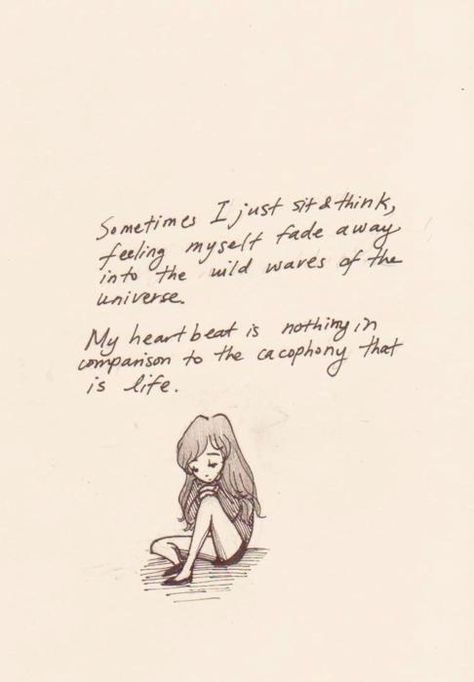 Sometimes I just sit & think,
feeling myself fade away
into the wild waves of the
universe.
My heartbeat is nothing in
comparison to the cacophony that
is life.